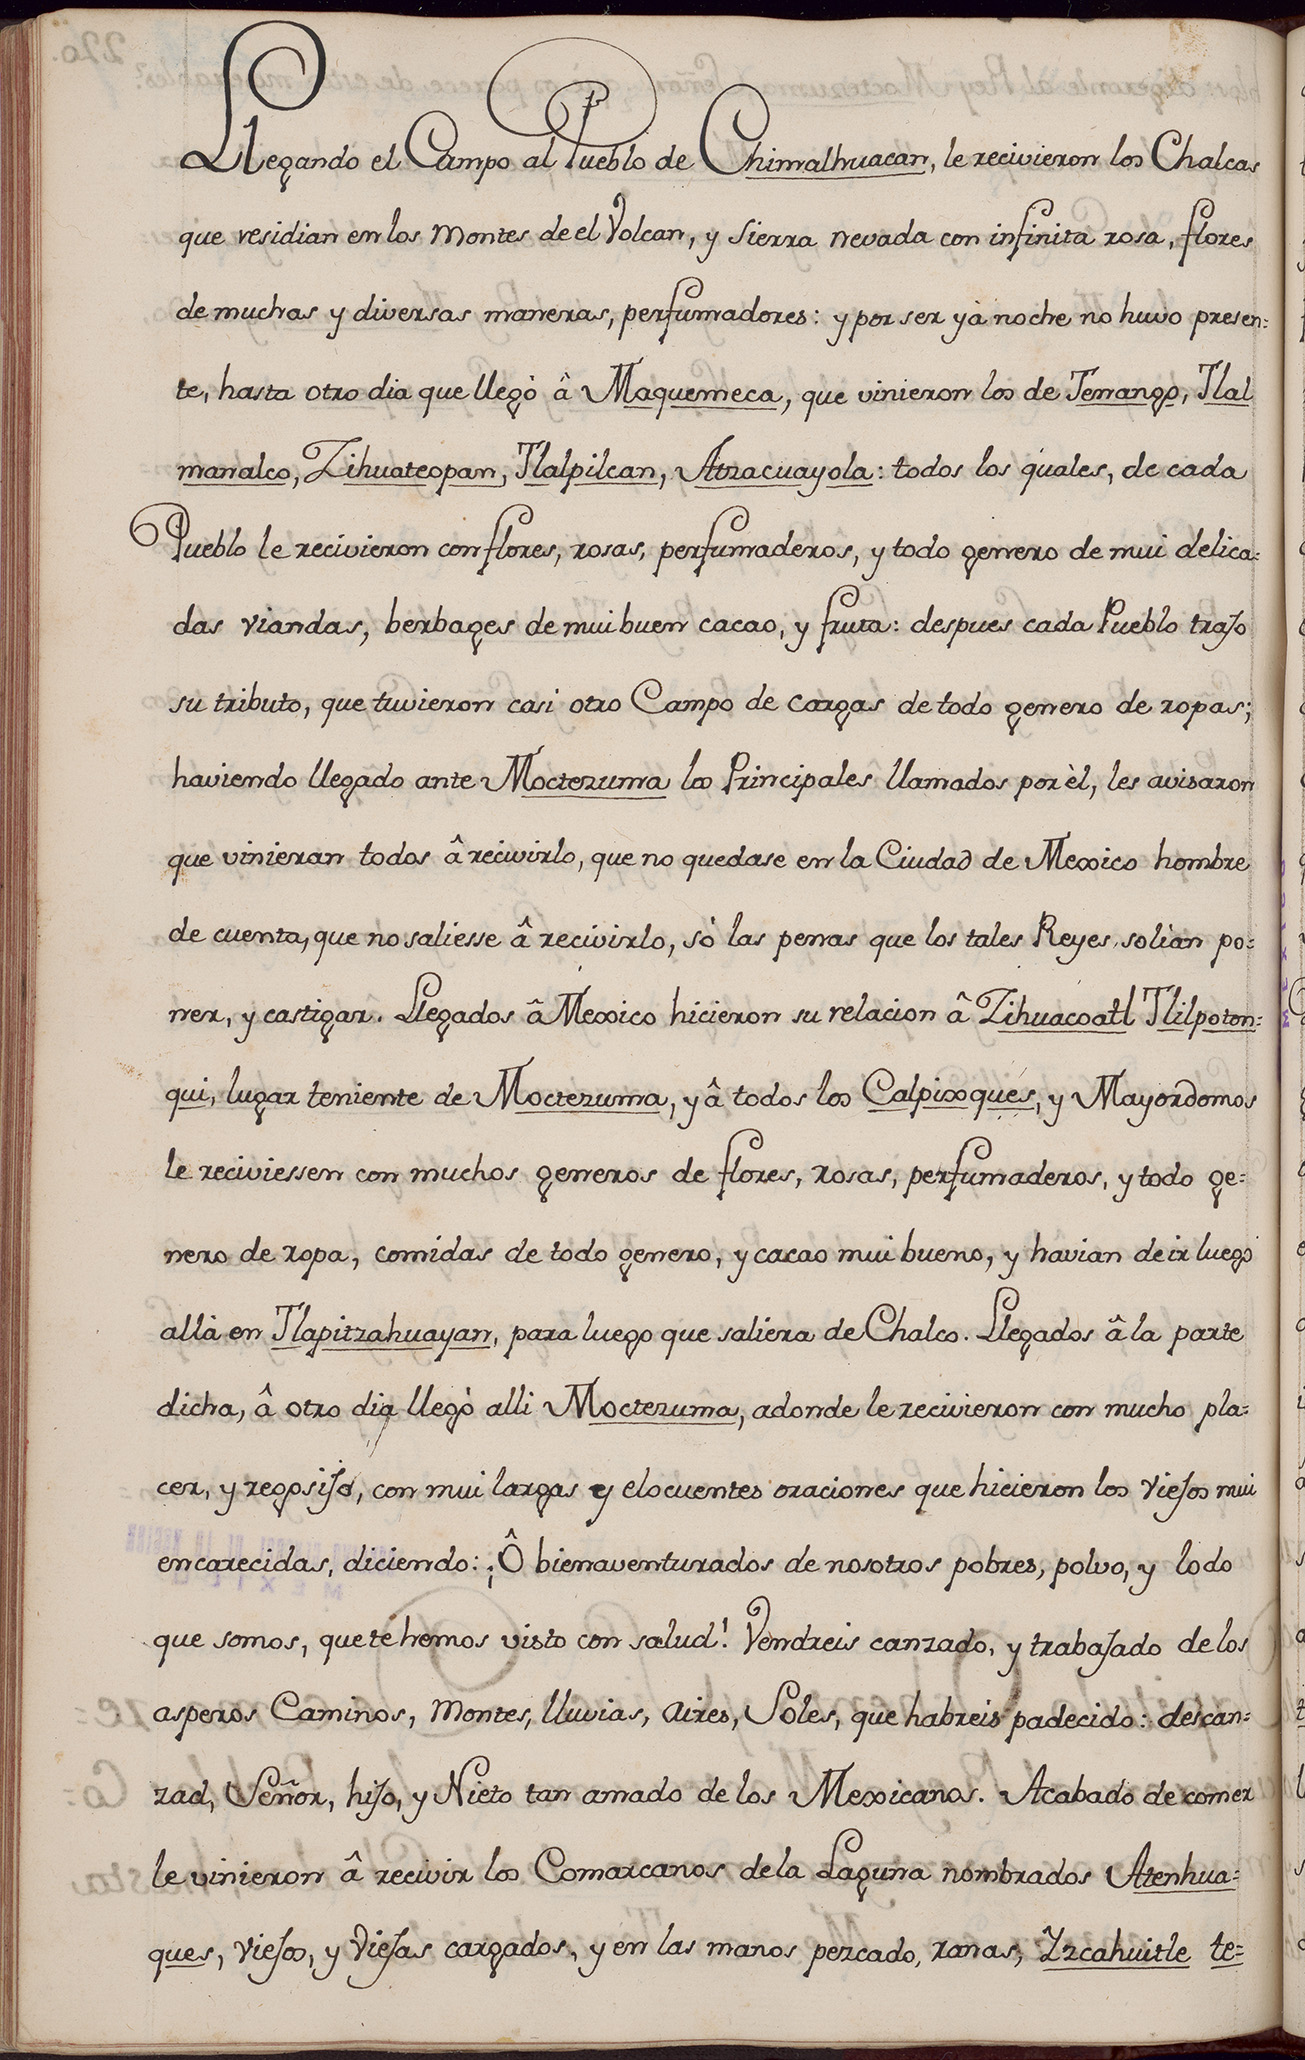 Llegando el Campo al Pueblo de Chimalhuacan, le recivieron los Chalcas
que residian en los Montes de el Volcan, y Sierra nevada con infinita rosa, flores
de muchas y diversas maneras, perfumadores: y por ser yà noche no huvo presen=
te, hasta otro dia que llegò â Maquemeca, que vinieron los de Tenango, Tlal
manalco, Zihuateopan, Tlalpilcan, Atzacuayola: todos los quales, de cada
Pueblo le recivieron con flores, rosas, perfumaderos, y todo genero de mui delica=
das viandas, berbages de mui buen cacao, y fruta: despues cada Pueblo trajo
su tributo, que tuvieron casi otro Campo de cargas de todo genero de ropas;
haviendo llegado ante Moctezuma los Principales llamados por èl, les avisaron
que vinieran todos â recivirlo, que no quedase en la Ciudad de Mexico hombre
de cuenta, que no saliesse â recivirlo, sò las penas que los tales Reyes solian po=
ner, y castigar. Llegados â Mexico hicieron su relacion â Zihuacoatl Tlilpoton=
qui, lugar teniente de Moctezuma, y â todos los Calpixques, y Mayordomos
le reciviessen con muchos generos de flores, rosas, perfumaderos, y todo ge=
nero de ropa, comidas de todo genero, y cacao mui bueno, y havian de ir luego
allà en Tlapitzahuayan, para luego que saliera de Chalco. Llegados â la parte
dicha, â otro dia llegò alli Moctezuma, adonde le recivieron con mucho pla=
cer, y regosijo, con mui largas y elocuentes oraciones que hicieron los viejos mui
encarecidas, diciendo: ¡Ô bienaventurados de nosotros pobres, polvo, y lodo
que somos, que te hemos visto con salud! Vendreis canzado, y trabajado de los
asperos Caminos, Montes, lluvias, aires, Soles, que habreis padecido: descan=
zad, Señor, hijo, y Nieto tan amado de los Mexicanos. Acabado de comer
le vinieron â recivir los Comarcanos de la Laguna nombrados Atenhua=
ques, viejos, y viejas cargados, y en las manos pezcado, ranas, Yzcahuitle te=